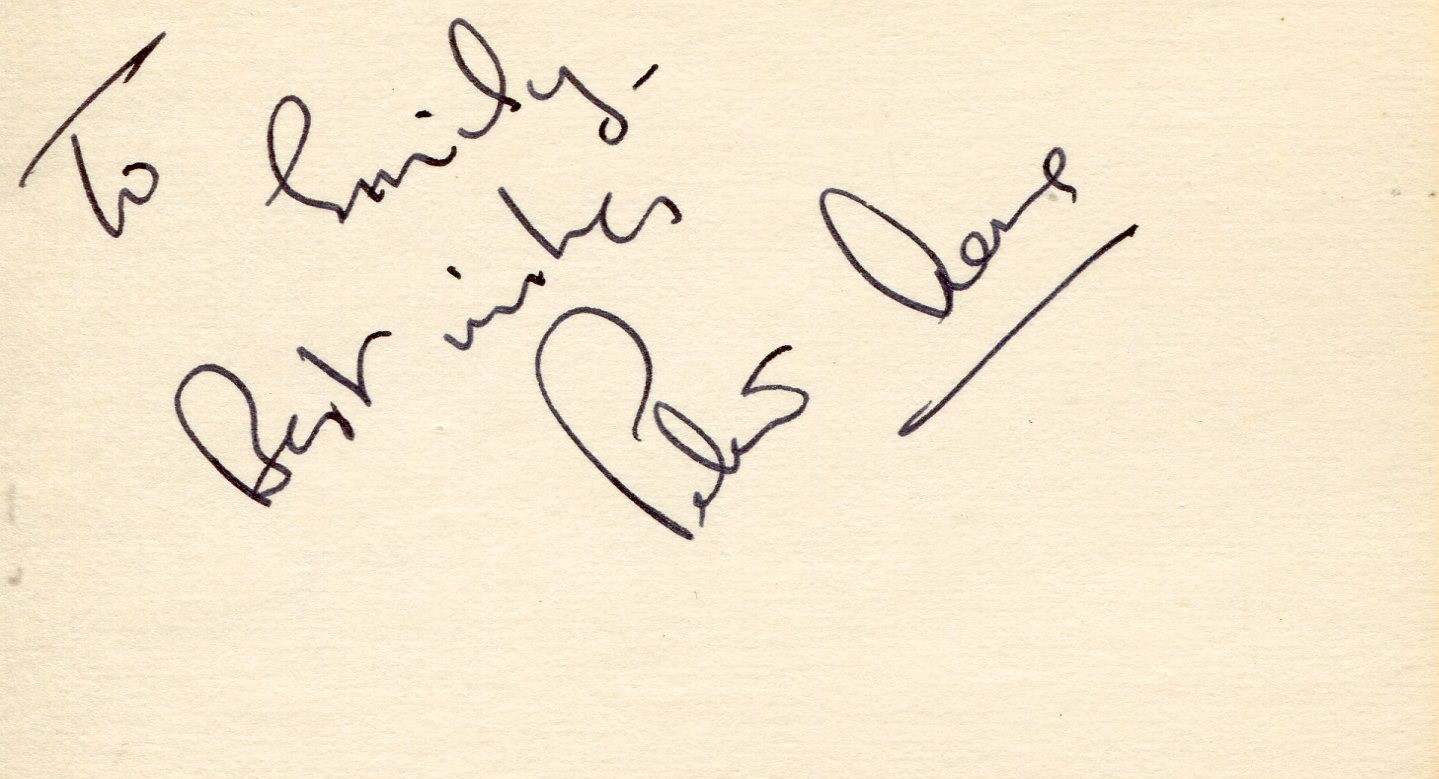 To Emily-
Best wishes
Peter